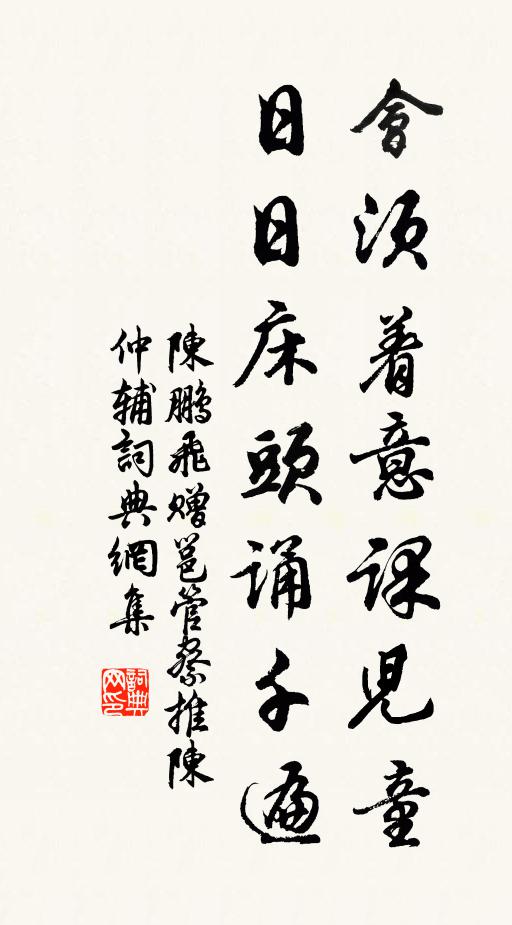 會須着意課兒童
日日床頭誦千遍
陳鵬飛贈邕管察推陳
仲辅詞典網集
詞典网印